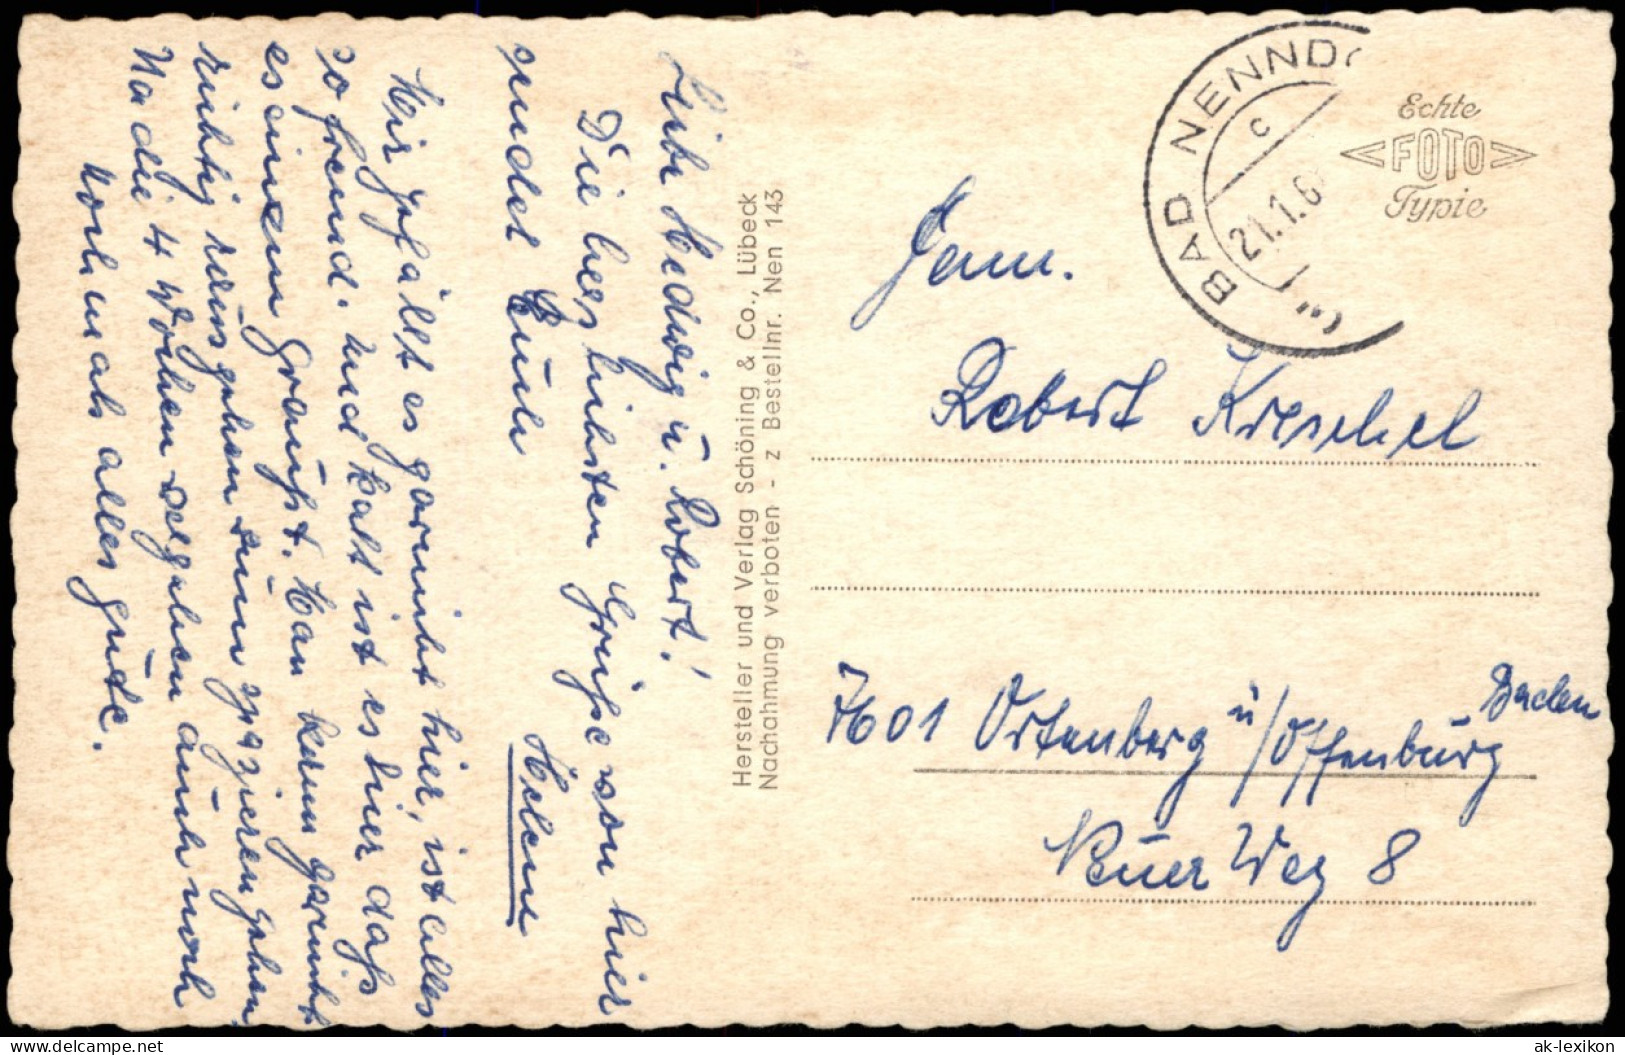 Liebe Hedwig u. Robert!
Die herzlichsten Grüße von hier
sendet Euch
Helene
Mir gefällt es garnicht hier, ist alles
so fremd. und kalt ist es hier daß
es einem graußt. Man kann garnicht
richtig raus gehen zum spazieren gehen,
Na die 4 Wochen vergehen auch noch
nochmals alles gute.
Hersteller und Verlag Schöning & Co., Lübeck
Nachahmung verboten - z Bestellnr. Nen 143
BAD NENNDO
c
21.1.6
Echte
FOTO
Typie
Fam.
Robert Kreschel
7601 Ortenberg ü/Offenburg
Baden
Weg 8
delcampe.net
ak-lexikon